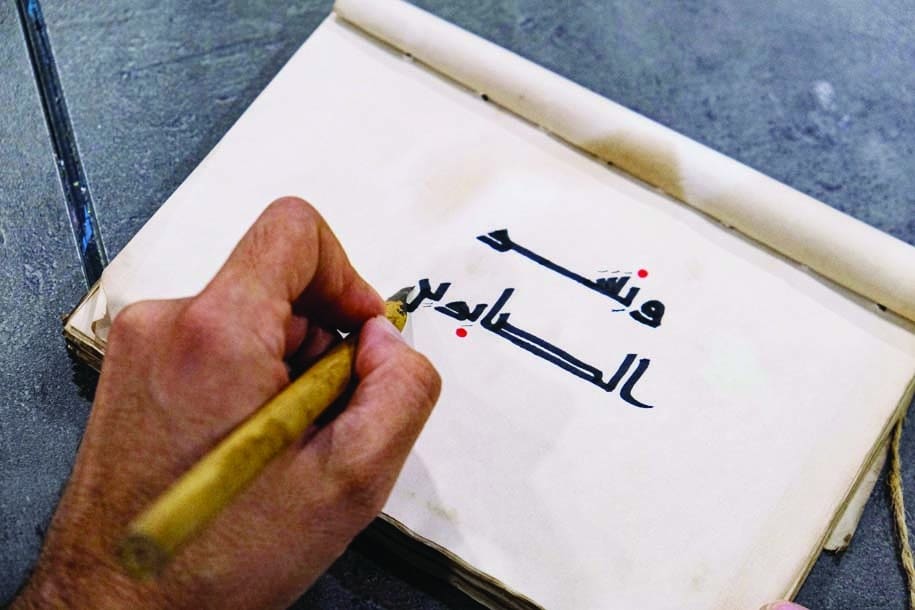 وبشر
الصابرين